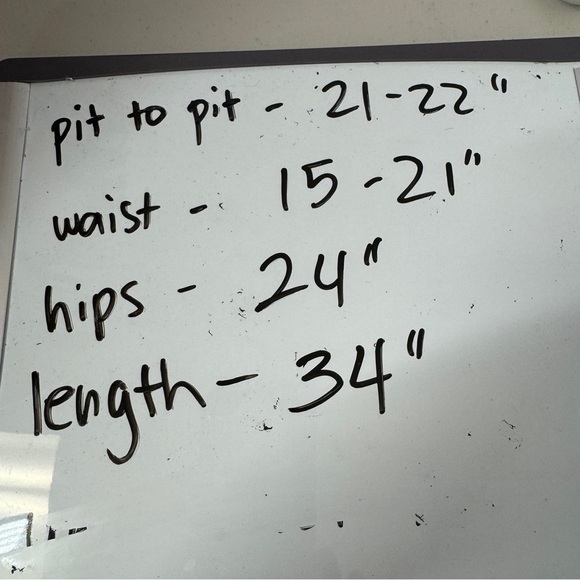 pit to pit - 21-22"
waist - 15-21"
hips - 24"
length - 34"